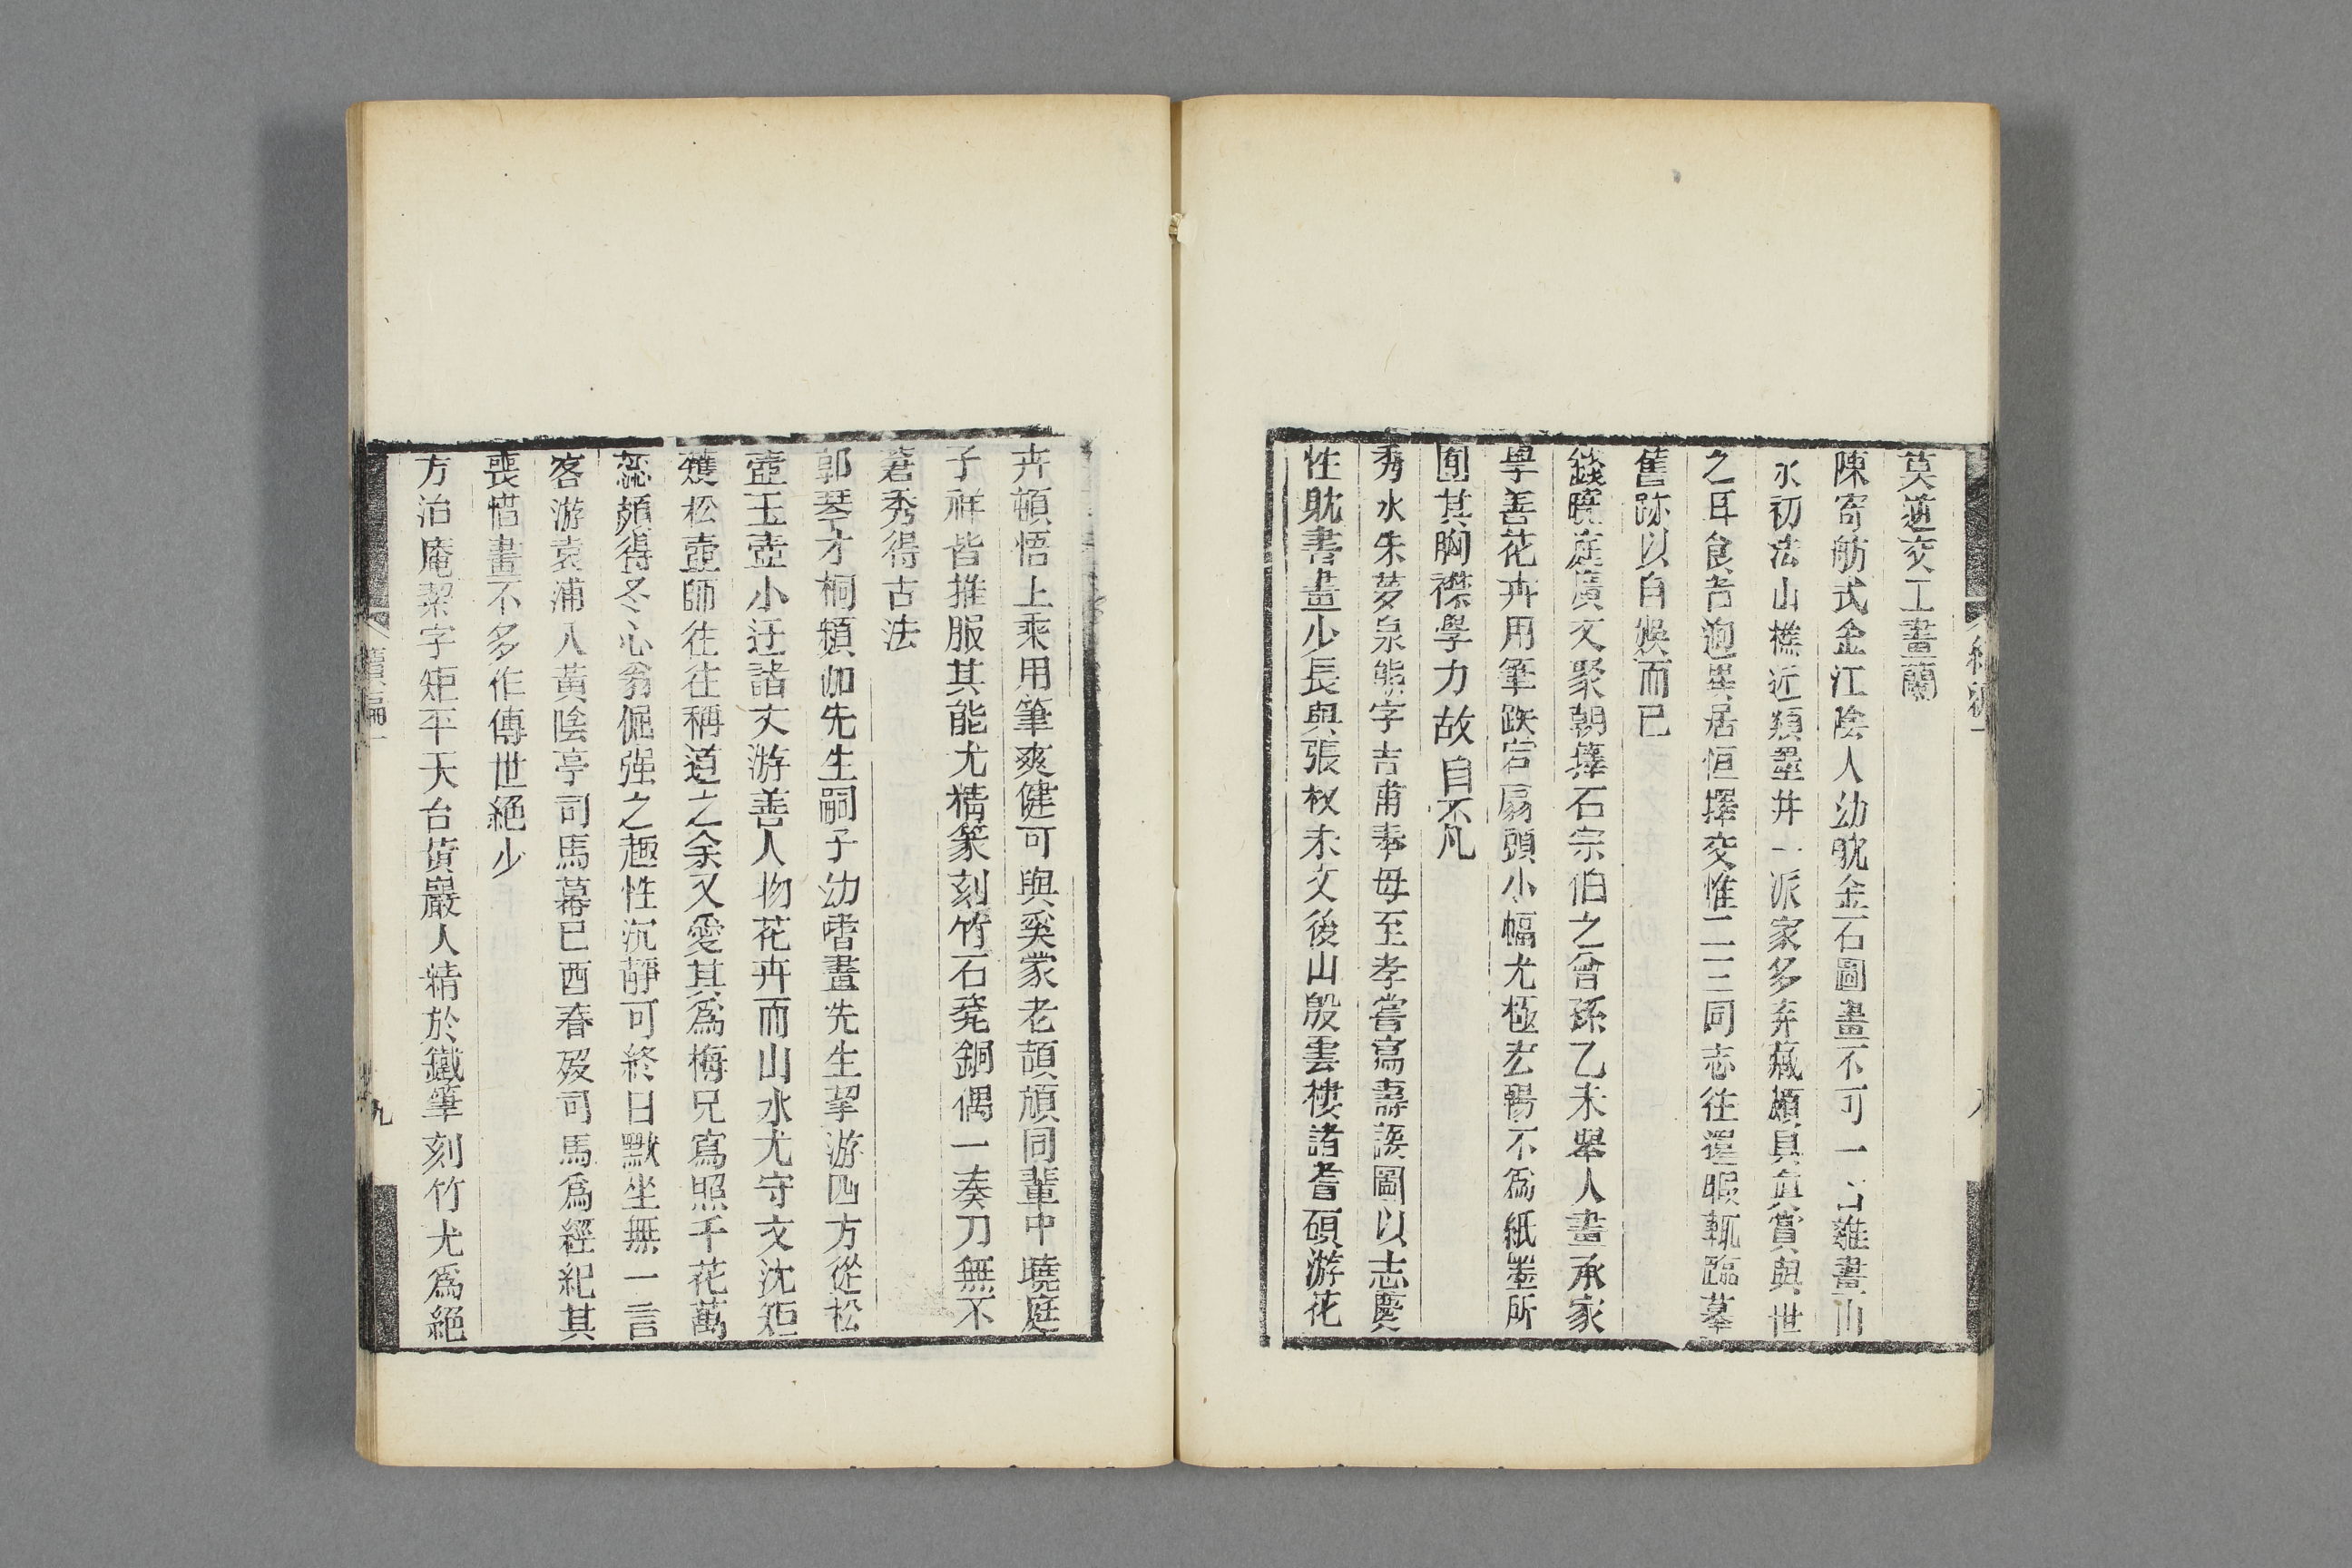 莫逆交工畫蘭
陳寄舫式金江陰人幼耽金石圖畫不可一日離畫山
水初法山樵近類墨井一派家多弆藏頗具真賞與世
之耳食者迥異居恒擇交惟二三同志往還暇輒臨摹
舊跡以自娛而已
錢曉庭廣文聚朝籜石宗伯之曾孫乙未舉人畫承家
學善花卉用筆跌宕扇頭小幅尤極宏暢不爲紙墨所
囿其胸襟學力故自不凡
秀水朱夢泉熊字吉甫奉母至孝嘗寫壽諼圖以志慶
性耽書畫少長與張叔未文後山殷雲樓諸耆碩游花
卉頓悟上乘用筆爽健可與奚蒙老頡頏同輩中曉庭
子祥皆推服其能尤精篆刻竹石瓷銅偶一奏刀無不
蒼秀得古法
郭琴才桐頻伽先生嗣子幼嗜畫先生挈游四方從松
壺玉壺小迂諸丈游善人物花卉而山水尤守文沈矩
矱松壺師往往稱道之余又愛其爲梅兄寫照千花萬
蕊頗得冬心翁倔强之趣性沉靜可終日默坐無一言
客游袁浦入黃陰亭司馬幕己酉春歿司馬爲經紀其
喪惜畫不多作傳世絕少
方治庵絜字矩平天台黃巖人精於鐵筆刻竹尤爲絕
續編一
九